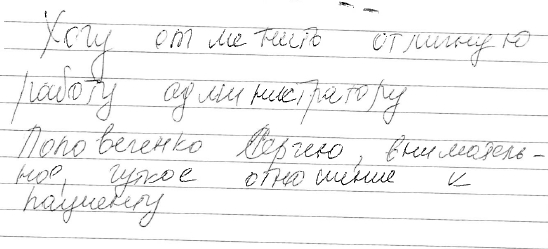 Хочу отметить отличную
работу администратору
Поповеченко Сергею, вниматель-
ное, чуткое отношение к
пациенту